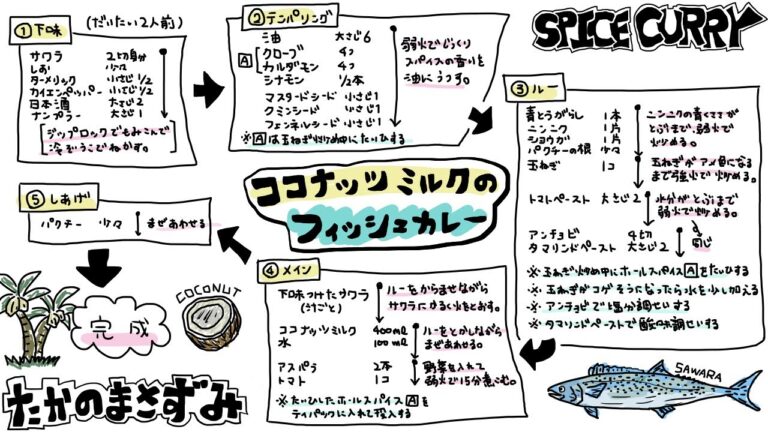 SPICE CURRY
ココナッツミルクの
フィッシュカレー
① 下味 (だいたい2人前)
サワラ 2切身分
しお 少々
ターメリック 小さじ1/2
カイエンペッパー 小さじ1/2
日本酒 大さじ2
ナンプラー 大さじ1
ジップロックでもみこんで
冷ぞうこでねかす。
② テンパリング
油 大さじ6
A クローブ 4コ
カルダモン 4コ
シナモン 1/2本
マスタードシード 小さじ1
クミンシード 小さじ1
フェンネルシード 小さじ1
弱火でじっくり
スパイスの香りを
油にうつす。
※Aは玉ねぎ炒め中にたいひする
③ ルー
青とうがらし 1本
ニンニク 1片
ショウガ 1片
パクチーの根 少々
ニンニクの青くささが
とぶまで、弱火で
炒める。
玉ねぎ 1コ
玉ねぎがアメ色になる
まで強火で炒める。
トマトペースト 大さじ2
水分がとぶまで
弱火で炒める。
アンチョビ 4切
タマリンドペースト 大さじ2
同じ
※玉ねぎ炒め中にホールスパイスAをたいひする
※玉ねぎがコゲそうになったら水を少し加える
※アンチョビで塩分調せいする
※タマリンドペーストで酸味調せいする
④ メイン
下味つけたサワラ
(汁ごと)
ルーをからませながら
サワラにかるく火をとおす。
ココナッツミルク 400ml
水 100ml
ルーをとかしながら
まぜあわせる。
アスパラ 2本
トマト 1コ
野菜を入れて
弱火で15分煮こむ。
※たいひしたホールスパイスAを
ティパックに入れて投入する
⑤ しあげ
パクチー 少々 まぜあわせる
完成
COCONUT
SAWARA
たかのまさずみ